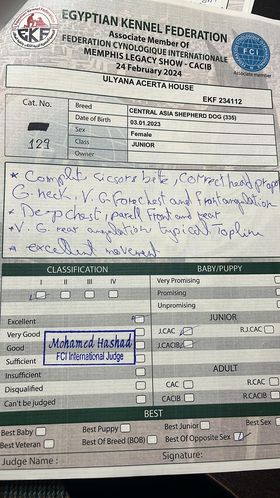 EGYPTIAN KENNEL FEDERATION
Associate Member Of
FEDERATION CYNOLOGIQUE INTERNATIONALE
MEMPHIS LEGACY SHOW - CACIB
24 February 2024
EKF
FCI
ULYANA ACERTA HOUSE
EKF 234112
Cat. No.
129
Breed CENTRAL ASIA SHEPHERD DOG (335)
Date of Birth 03.01.2023
Sex Female
Class JUNIOR
Owner
* Complete scissors bite, Correct head propor
G. neck, V. G. forechest and front angulation
* Deep chest, parell front and rear
* V. G. rear angulation typical Topline
* excellent movement
CLASSIFICATION
I II III IV
BABY/PUPPY
Very Promising
Promising
Unpromising
Excellent
Very Good
Good
Sufficient
Insufficient
Disqualified
Can't be judged
Mohamed Hashad
FCI International Judge
JUNIOR
J.CAC R.J.CAC
J.CACIB
ADULT
CAC R.CAC
CACIB R.CACIB
BEST
Best Baby Best Puppy Best Junior Best Sex
Best Veteran Best Of Breed (BOB) Best Of Opposite Sex
Judge Name : Signature: